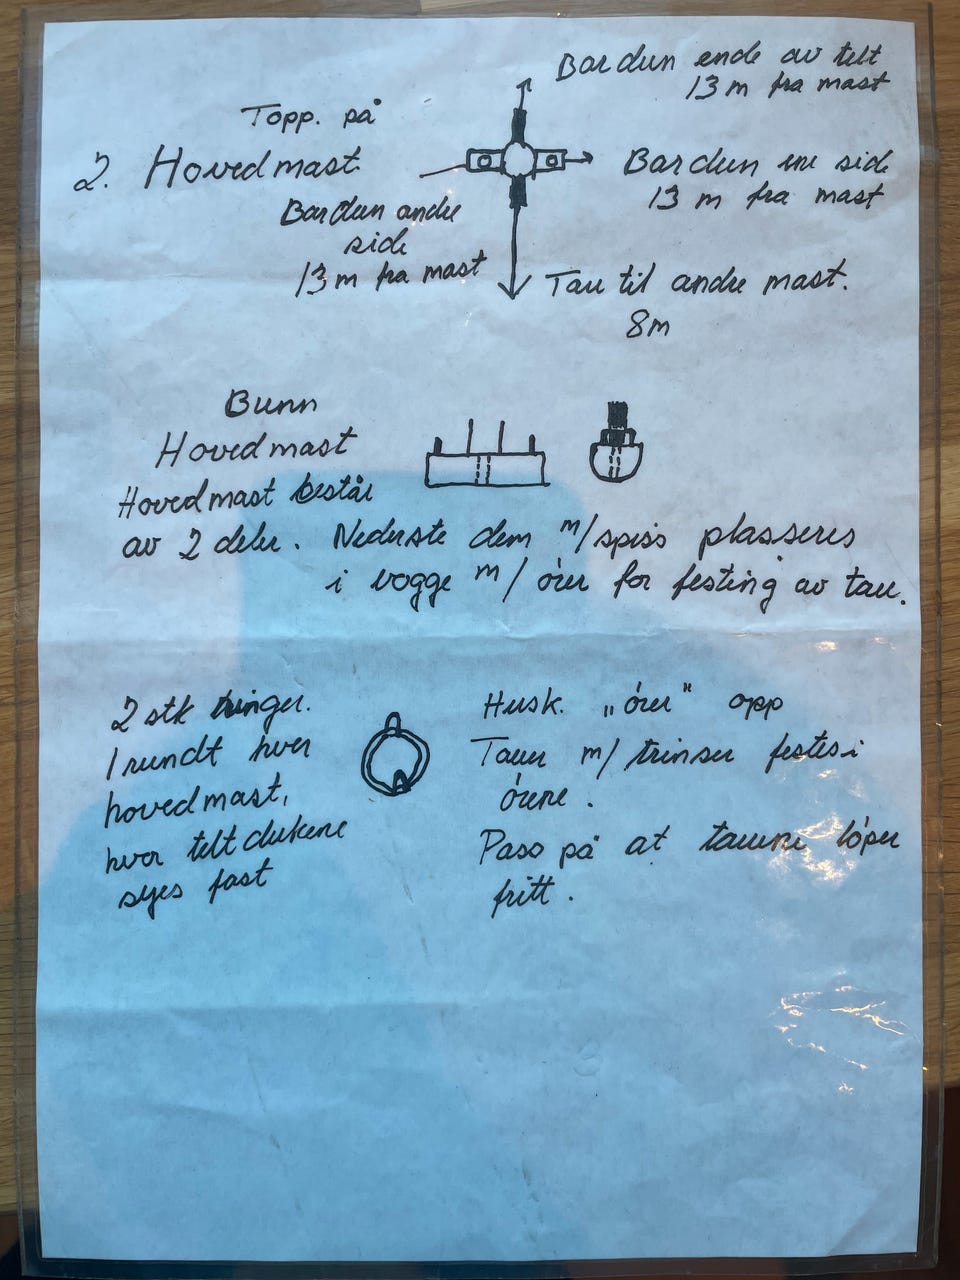 Bardun ende av telt
13 m fra mast
Topp. på
2. Hovedmast
Bardun ene side
13 m fra mast
Bardun andre
side
13 m fra mast
Tau til andre mast.
8m
Bunn
Hovedmast
Hovedmast består
av 2 deler. Nederste dem m/spiss plasseres
i vogge m/ örer for festing av tau.
2 stk ringer.
1 rundt hver
hovedmast,
hvor teltdukene
syes fast
Husk. „örer" opp
Tauer m/ trinser festes i
örene.
Pass på at tauene löper
fritt.